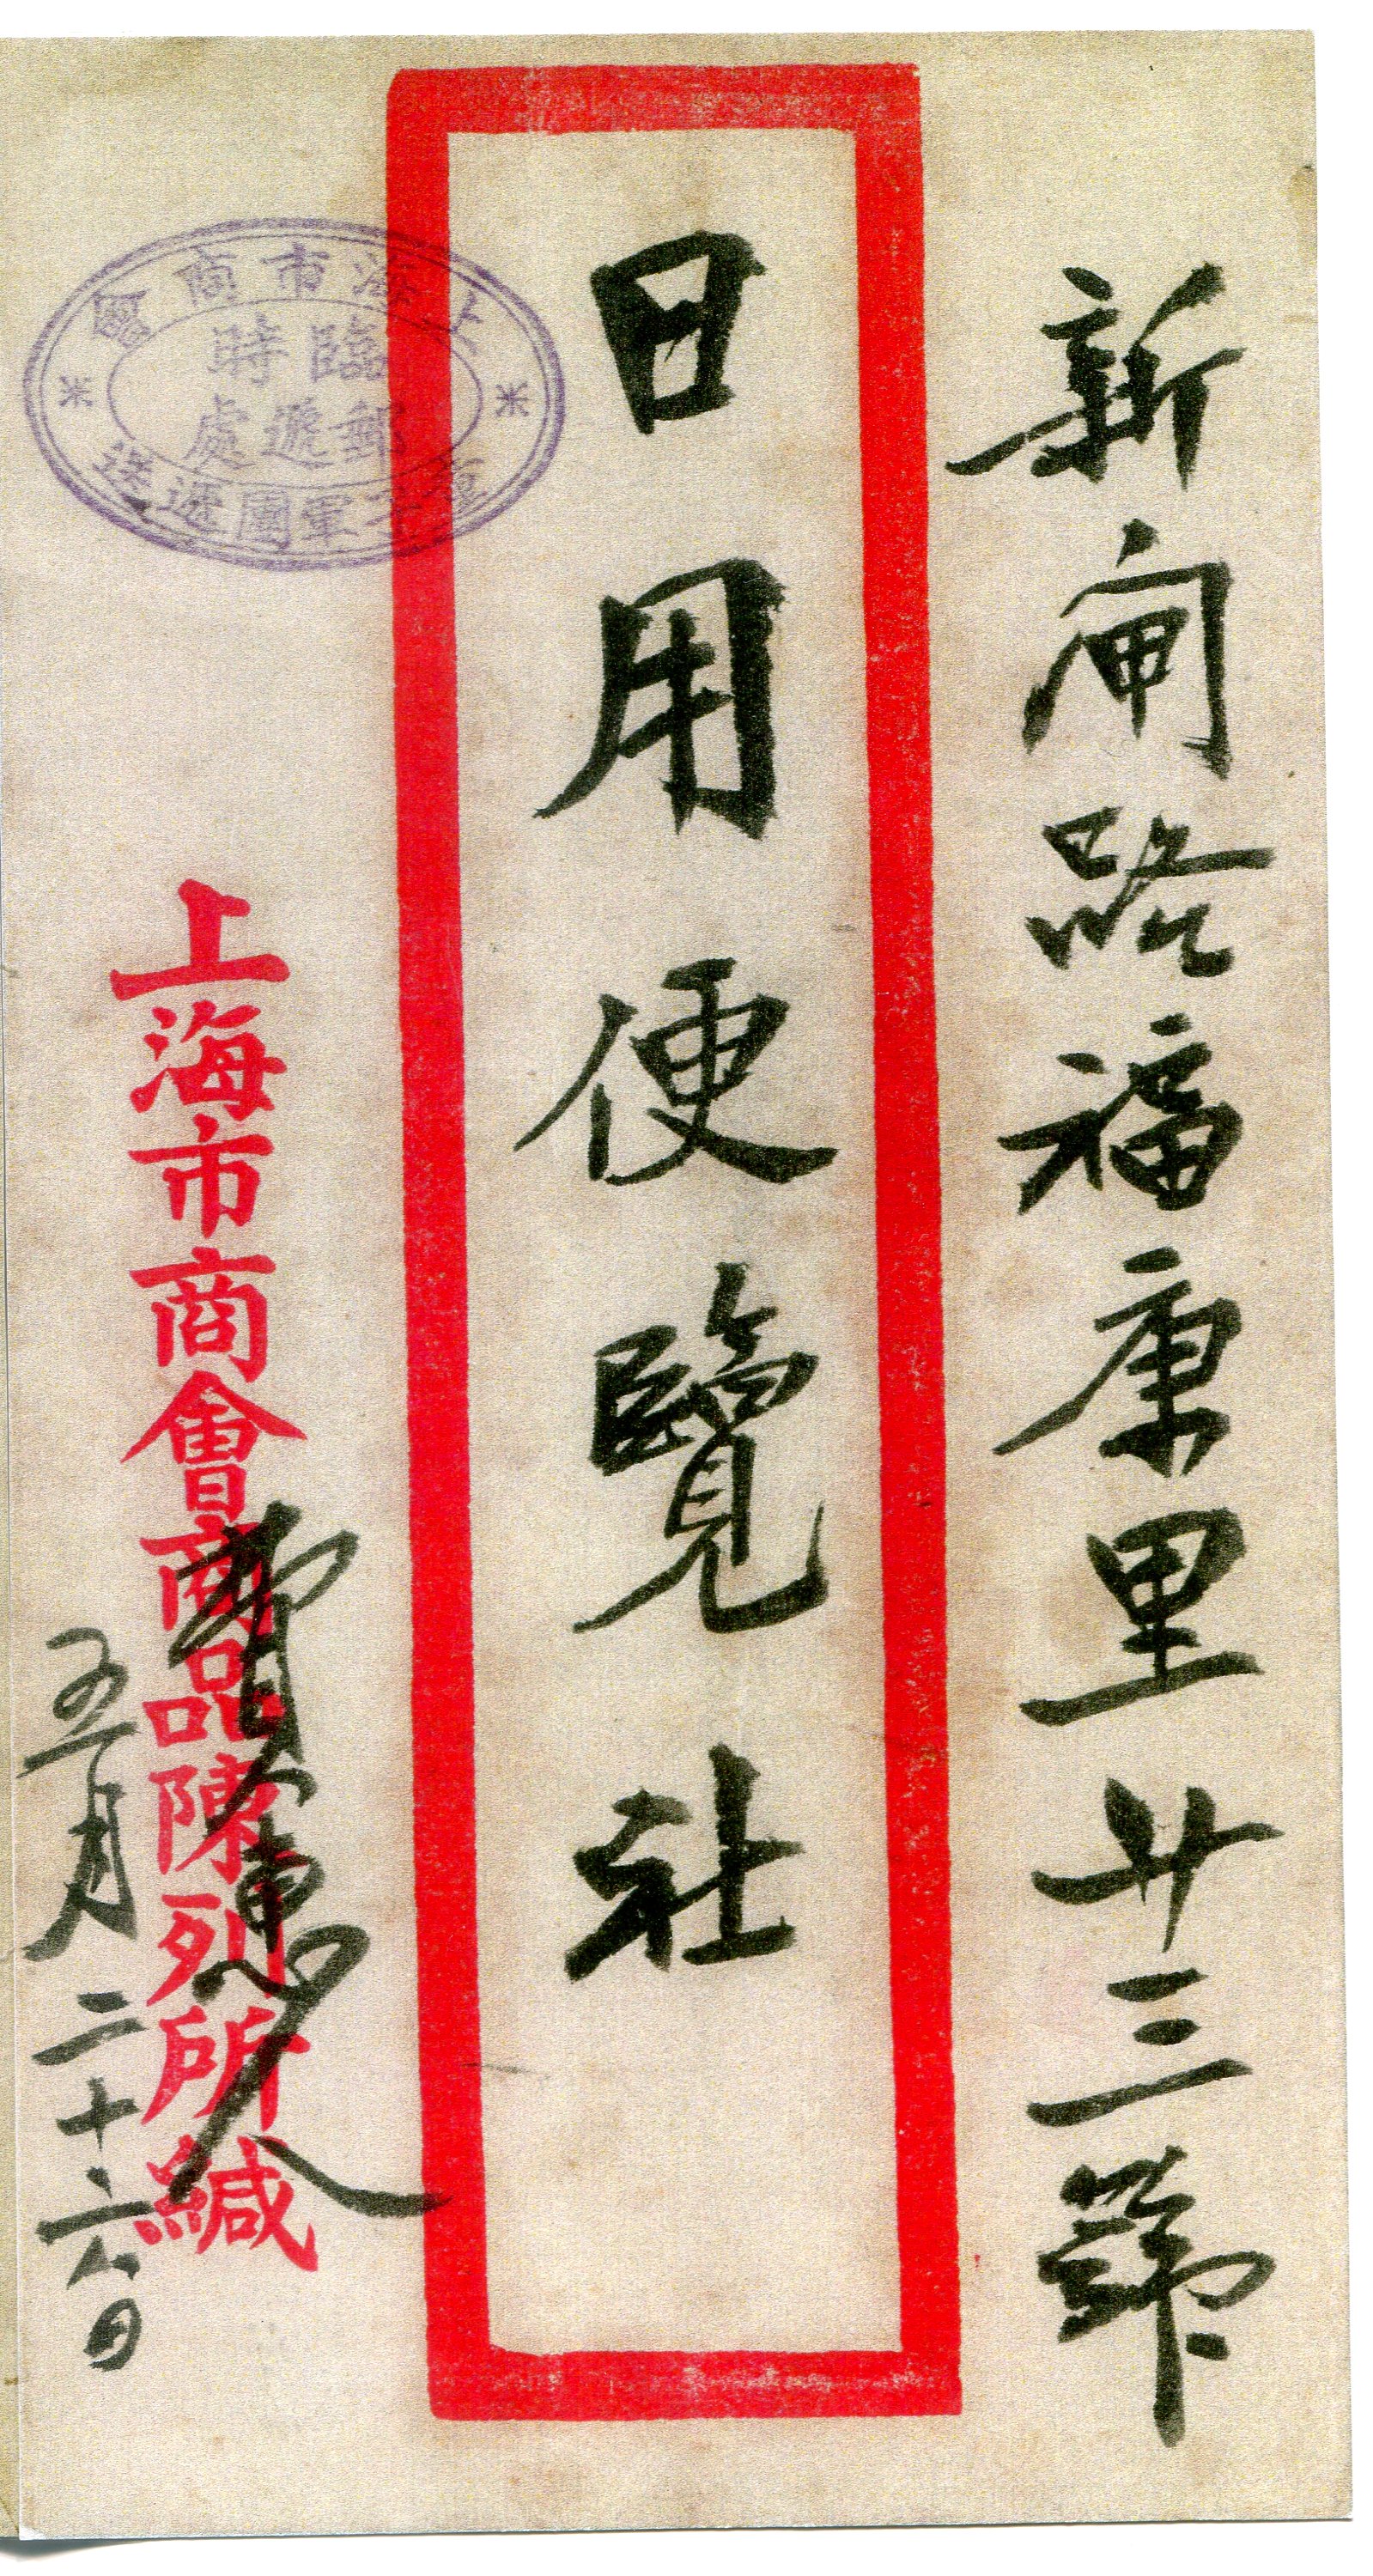 新闸路福康里廿三號
日用便覽社
上海市商會商品陳列所緘
五月二十六日
上海市商會
臨時
郵遞處
童子軍團遞送